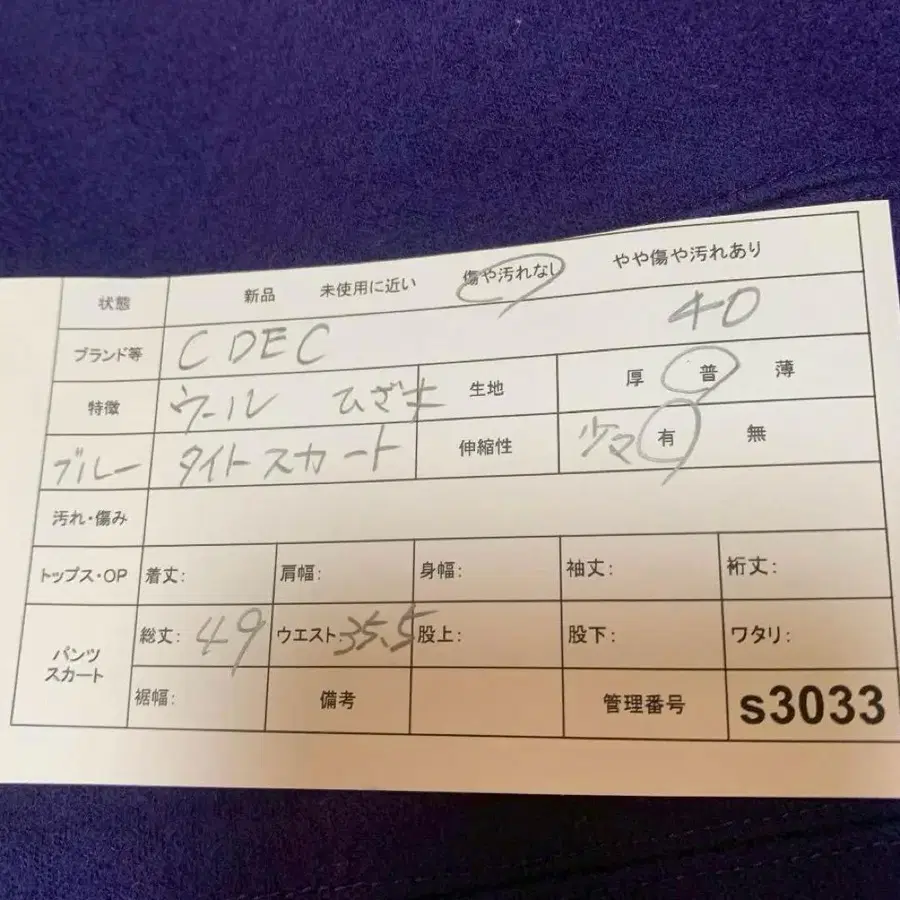 状態 新品 未使用に近い 傷や汚れなし やや傷や汚れあり
ブランド等 CDEC 40
特徴 ウール ひざ丈 生地 厚 普 薄
ブルー タイトスカート 伸縮性 少マ 有 無
汚れ・傷み
トップス・OP 着丈: 肩幅: 身幅: 袖丈: 裄丈:
パンツ スカート 総丈: 49 ウエスト: 35.5 股上: 股下: ワタリ:
裾幅: 備考 管理番号 s3033